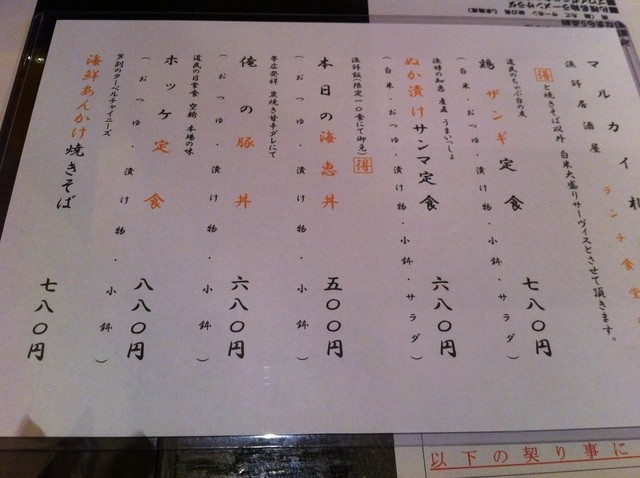 漁師居酒屋
マルカイ札
ランチ食堂
得と焼きそば以外 白米大盛りサーヴィスとさせて頂きます。
道民のちゃぶ台の友
鶏ザンギ定食 七八〇円
(白米・おつゆ・漬け物・小鉢・サラダ)
漁師の知恵 産直 うまいっしょ
ぬか漬けサンマ定食 六八〇円
(白米・おつゆ・漬け物・小鉢・サラダ)
漁師飯(限定一〇食にて御免) 得
本日の海恵丼 五〇〇円
(おつゆ・漬け物・小鉢)
帯広発祥 炭焼き甘辛ダレにて
俺の豚丼 六八〇円
(おつゆ・漬け物・小鉢)
道民の日常食 空輸 本場の味
ホッケ定食 八八〇円
(おつゆ・漬け物・小鉢)
芦別のターベルチャイニーズ
海鮮あんかけ焼きそば 七八〇円
以下の契り事に